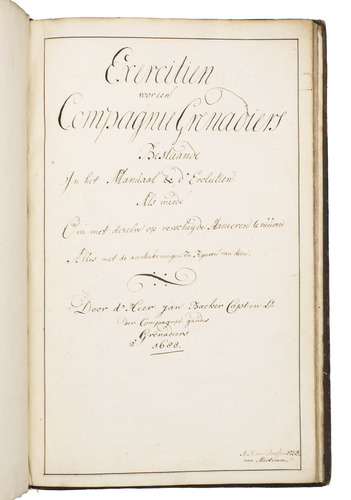 Exercitien
voor een
Compagnie Grenadiers
Bestaande
In het Manuaal & d'Evolutien
Als meede
Om met deselve op verscheyde Manieren te vüüren
Alles met de aanteekeningen en Figuren van dien.
Door d'Heer Jan Backer Capten Lt
der Compagnie gardes
Grenadiers
a°
1688
1738
van